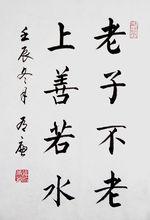 老子不老
上善若水
壬辰冬月